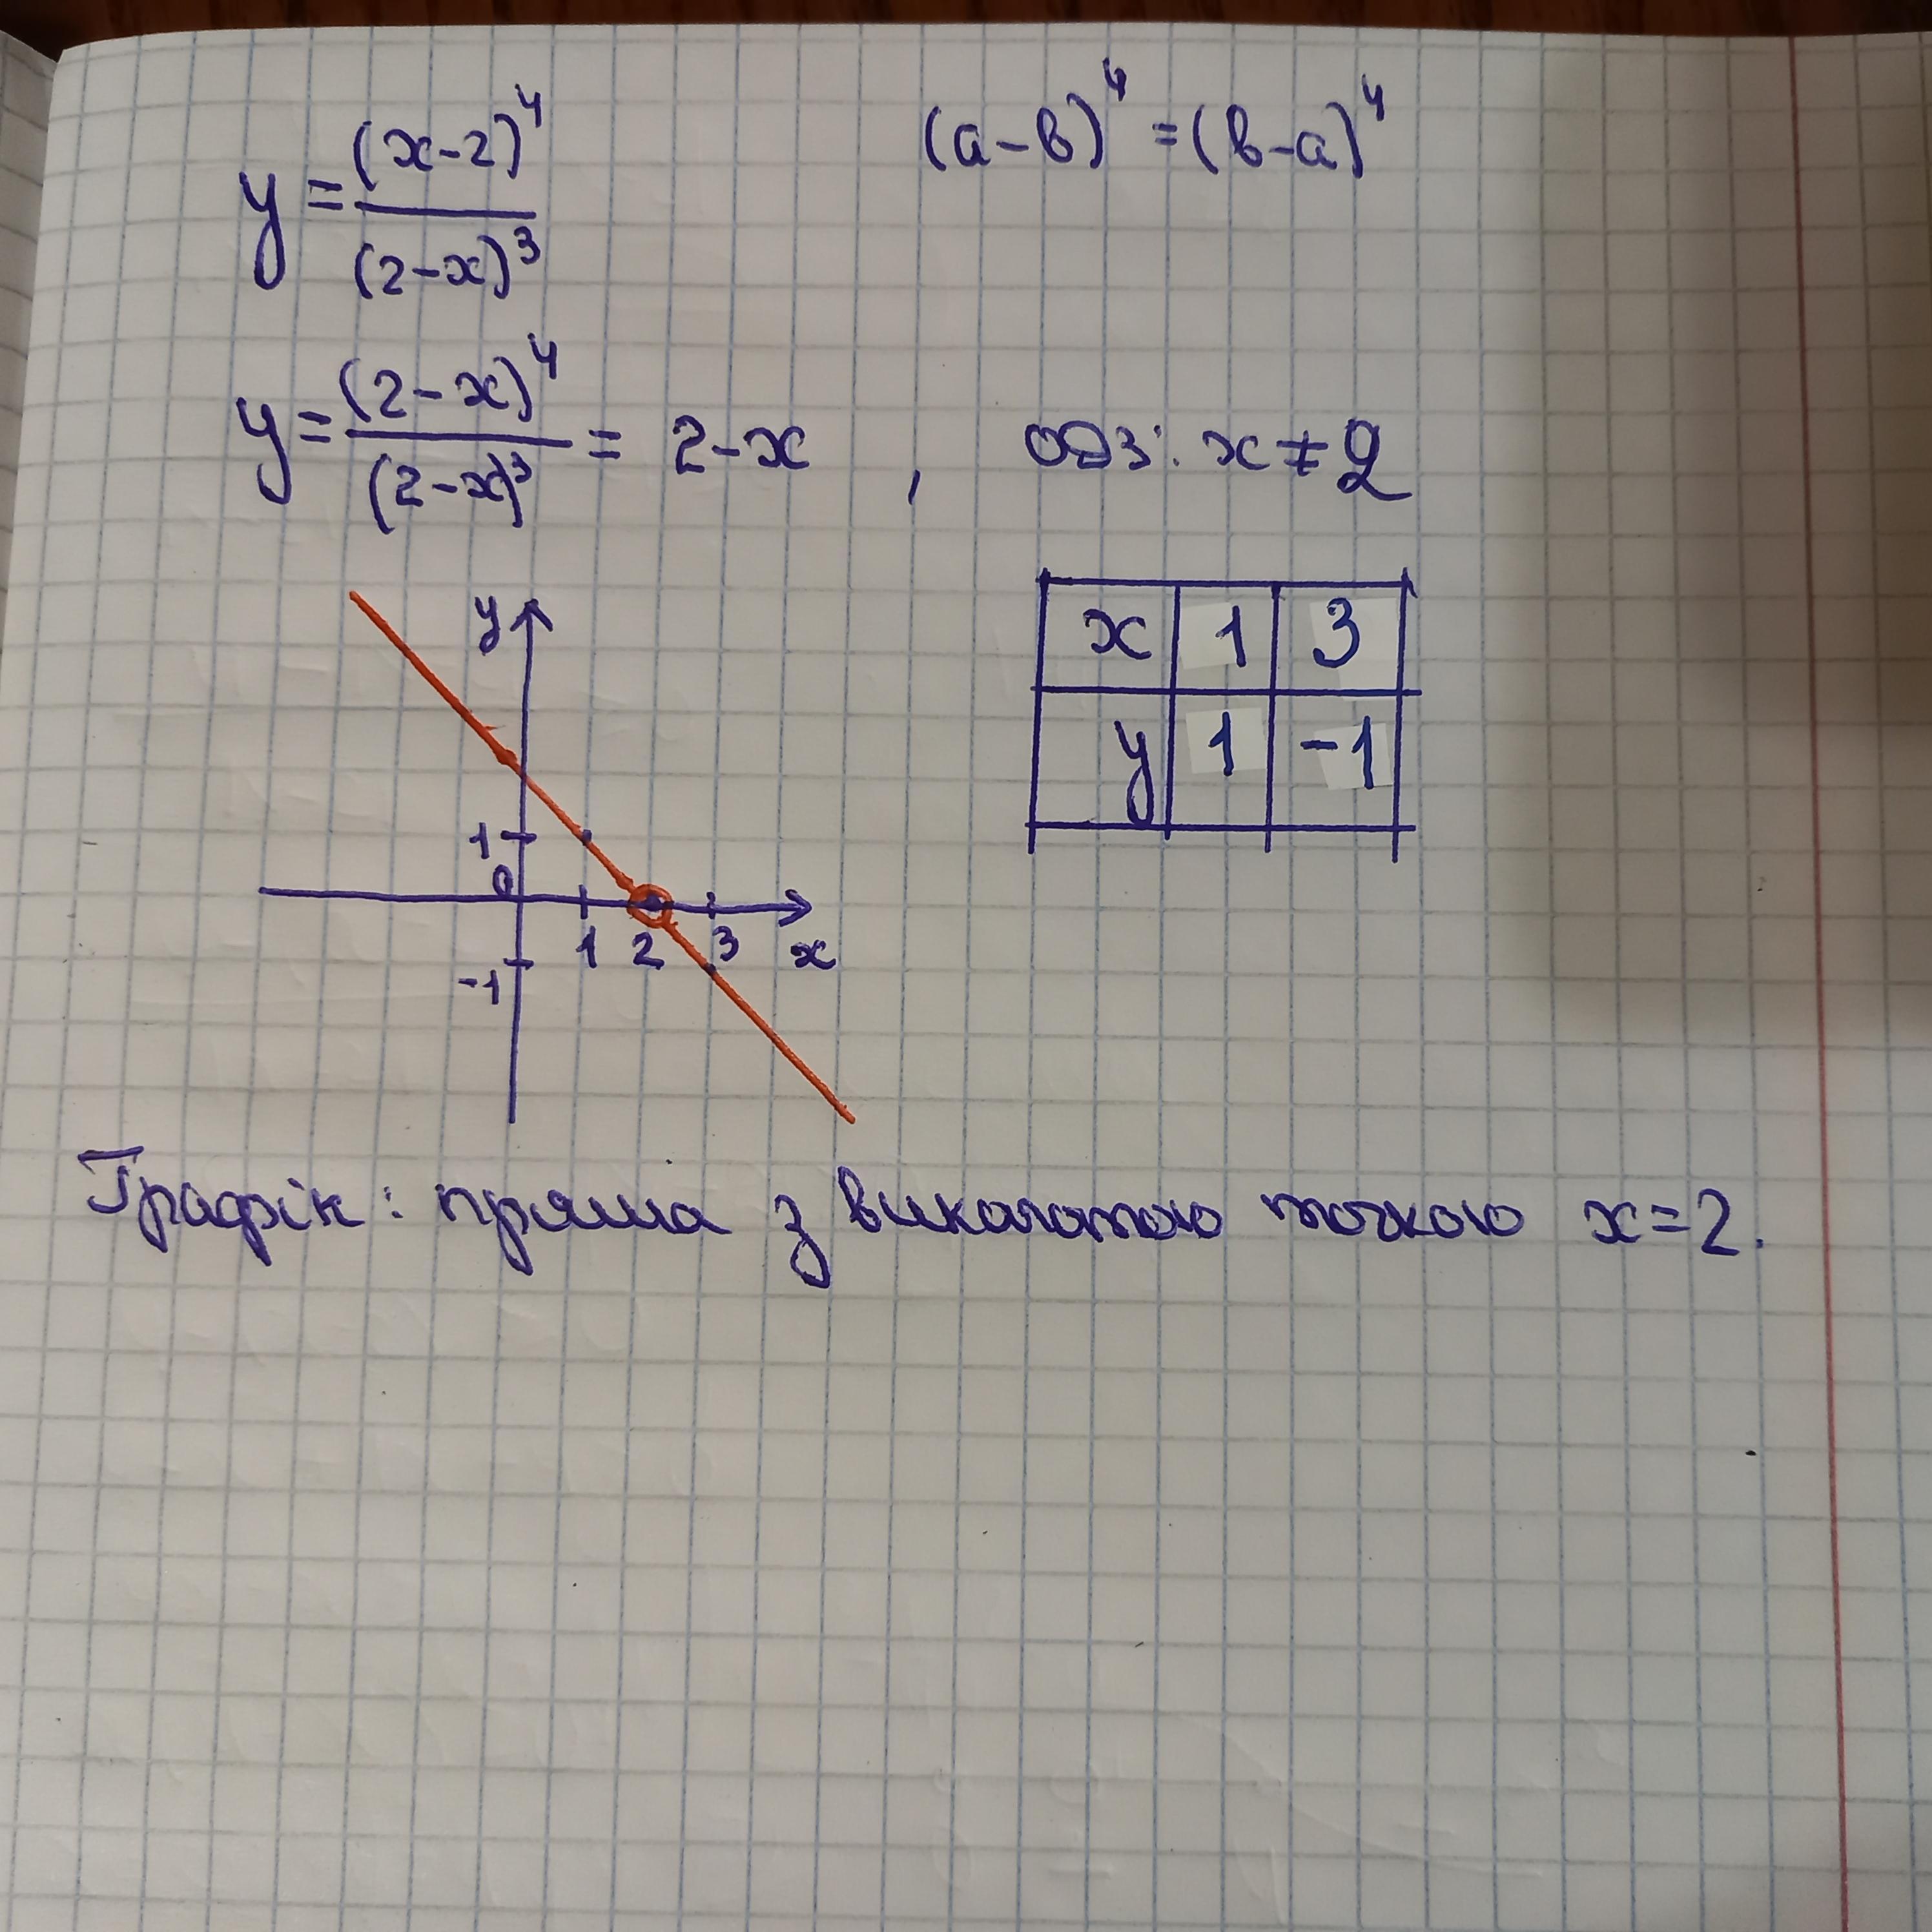 y = (x-2)⁴ / (2-x)³
(a-b)⁴ = (b-a)⁴
y = (2-x)⁴ / (2-x)³ = 2-x , ОДЗ: x ≠ 2
y
1
0
1 2 3 x
-1
x 1 3
y 1 -1
Графік: пряма з виколотою точкою x=2.